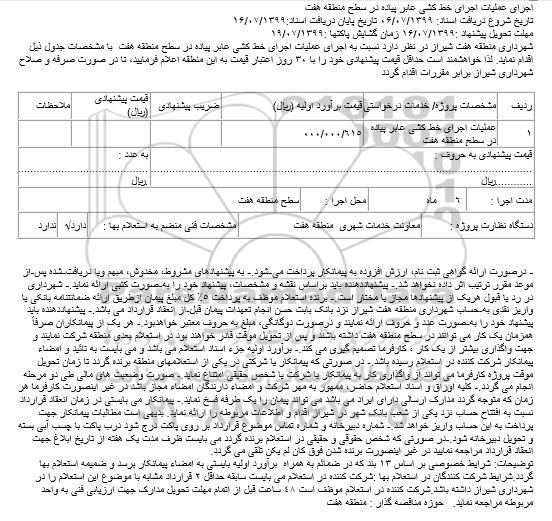 اجرای عملیات اجرای خط کشی عابر پیاده در سطح منطقه هفت
تاریخ شروع دریافت اسناد: ۰۶/۰۷/۱۳۹۹ تاریخ پایان دریافت اسناد:۱۶/۰۷/۱۳۹۹
مهلت تحویل پیشنهاد :۱۶/۰۷/۱۳۹۹ زمان گشایش پاکتها :۱۹/۰۷/۱۳۹۹
شهرداری منطقه هفت شیراز در نظر دارد نسبت به اجرای عملیات اجرای خط کشی عابر پیاده در سطح منطقه هفت با مشخصات جدول ذیل
اقدام نماید. لذا خواهشمند است حداقل قیمت پیشنهادی خود را با ۳۰ روز اعتبار قیمت به این منطقه اعلام فرمایید، تا در صورت صرفه و صلاح
شهرداری شیراز برابر مقررات اقدام گردد
ردیف مشخصات پروژه/ خدمات درخواستی قیمت برآورد اولیه (ریال) ضریب پیشنهادی قیمت پیشنهادی (ریال) ملاحظات
۱ عملیات اجرای خط کشی عابر پیاده در سطح منطقه هفت ۰۰۰/۰۰۰/۶۱۵
قیمت پیشنهادی به حروف : به عدد :
............ریال ریال
مدت اجرا : ۶ ماه محل اجرا : سطح منطقه هفت
دستگاه نظارت پروژه : معاونت خدمات شهری منطقه هفت مشخصات فنی منضم به استعلام بها : دارد√ ندارد
ـ درصورت ارائه گواهی ثبت نام، ارزش افزوده به پیمانکار پرداخت می‌شود.ـ به پیشنهادهای مشروط، مخدوش، مبهم ویا دریافت‌شده پس‌از
موعد مقرر ترتیب اثر داده نخواهد شد.ـ پیشنهاددهنده باید براساس نقشه و مشخصات، پیشنهاد خود را به‌صورت کتبی ارائه نماید.ـ شهرداری
در رد یا قبول هریک از پیشنهادها مجاز یا مختار است.ـ برنده استعلام موظف به پرداخت ۵٪ کل مبلغ پیمان ازطریق ارائه ضمانتنامه بانکی یا
واریز نقدی به‌حساب شهرداری منطقه هفت شیراز نزد بانک بابت حسن انجام تعهدات پیمان قبل‌از انعقاد قرارداد می باشد.ـ پیشنهاددهنده باید
پیشنهاد خود را به‌صورت عدد و حروف ارائه نمایند و درصورت دوگانگی، مبلغ به حروف معتبر خواهدبود.ـ هر یک از پیمانکاران صرفاً
همزمان یک کار می توانند در سطح منطقه هفت داشته باشند و پس از تحویل موقت قادر خواهند بود در استعلام بعدی منطقه شرکت نمایند و
جهت واگذاری بیشتر از یک کار ، کارفرما تصمیم گیری می کند .ـ برآورد اولیه جزء اسناد استعلام می باشد و می بایست به تائید و امضاء
پیمانکار شرکت کننده در استعلام رسیده باشد .ـ در صورتی که پیمانکار یا شرکتی در یکی از استعلامهای منطقه برنده گردد تا زمان تحویل
موقت پروژه کارفرما می تواند از واگذاری کار به پیمانکار یا شرکت یا شخص حقیقی امتناع نماید .ـ صورت وضعیت های مالی طی دو مرحله
انجام می گردد.ـ کلیه اوراق و اسناد استعلام حاضر، ممهور به مهر شرکت و امضاء دارندگان امضاء مجاز باشد در غیر اینصورت کارفرما هر
زمان که متوجه گردد مدارک ارسالی دارای ایراد می باشد می تواند پیمان را یک طرفه فسخ نماید.ـ پیمانکار می بایستی در زمان انعقاد قرارداد
نسبت به افتتاح حساب نزد یکی از شعب بانک شهر در شیراز اقدام و اطلاعات مربوطه را ارائه نماید. بدیهی است مطالبات پیمانکار جهت
پرداخت به این حساب واریز خواهد شد.ـ شماره دبیرخانه و شماره تماس موضوع قرارداد بر روی پاکت درج شود درب پاکت با چسب آبی بسته
و تحویل دبیرخانه شود.ـدر صورتی که شخص حقوقی و حقیقی در استعلام برنده گردد می بایست ظرف مدت یک هفته از تاریخ ابلاغ جهت
انعقاد قرارداد مراجعه نمایید در غیر اینصورت برنده شدن فوق کان لم یکن تلقی می گردد.
توضیحات: شرایط خصوصی بر اساس ۱۳ بند که در ضمائم به همراه برآورد اولیه بایستی به امضاء پیمانکار برسد و ضمیمه استعلام بها
گردد.شرایط شرکت کنندگان در استعلام بها :شرکت کننده در استعلام می بایست سابقه حداقل ۲ قرارداد مشابه با موضوع این استعلام را در
شهرداری شیراز داشته باشد.شرکت کننده در استعلام موظف است ۴۸ ساعت قبل از اتمام مهلت تحویل مدارک جهت ارزیابی فنی به واحد
مربوطه مراجعه نماید. حوزه مناقصه گذار : منطقه هفت